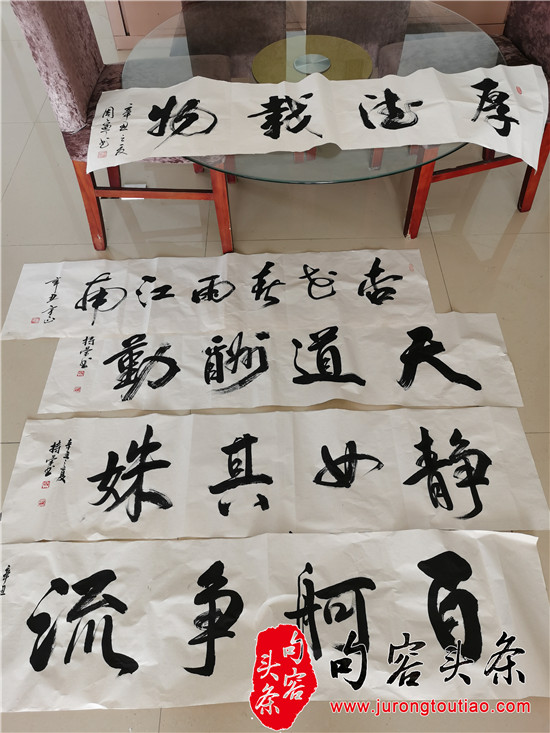 厚德载物
辛丑之夏
杏花春雨江南
辛丑
天道酬勤
静女其姝
辛丑之夏
百舸争流
辛丑
句容头条
句容头条
www.jurongtoutiao.com